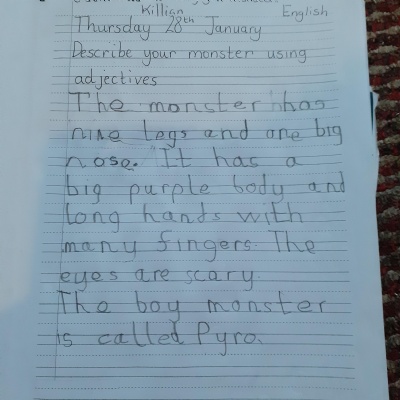 Killian English
Thursday 28th January
Describe your monster using
adjectives
The monster has
nine legs and one big
nose. It has a
big purple body and
long hands with
many fingers. The
eyes are scary.
The boy monster
is called Pyro.